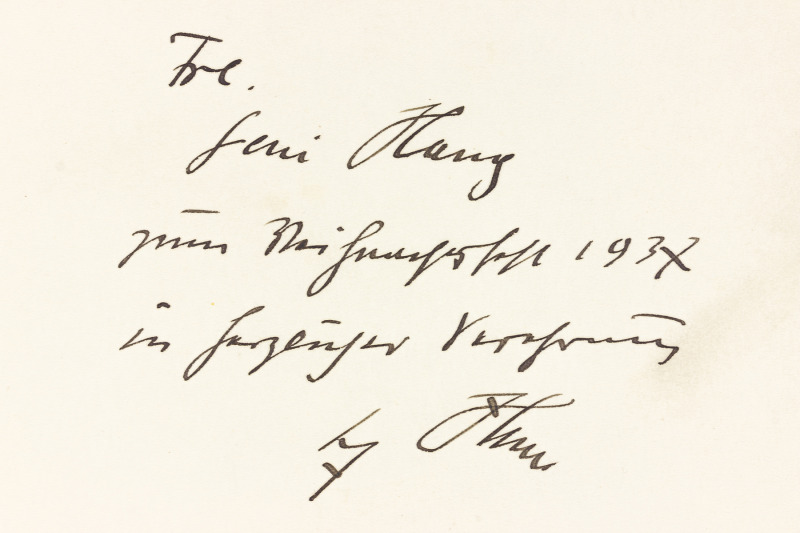 Frl.
Leni Haug
zum Weihnachtsfest 1937
in herzlicher Verehrung